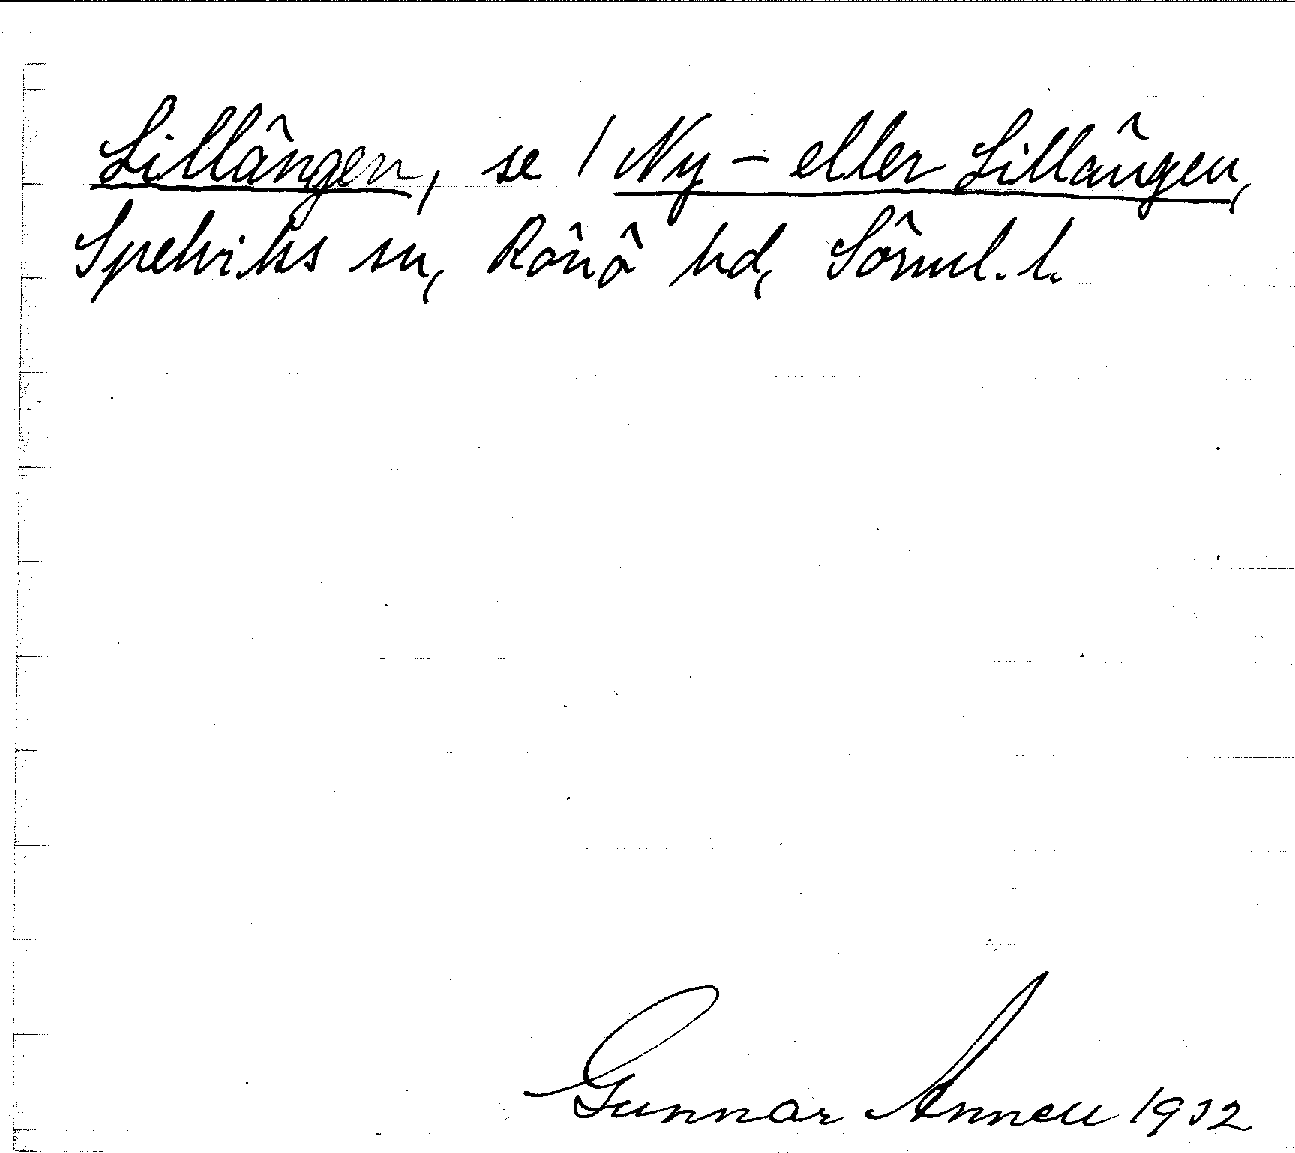 Lillängen, se 1 Ny- eller Lillängen,
Spelviks sn, Rönö hd, Sörml. l.
Gunnar Annell 1932